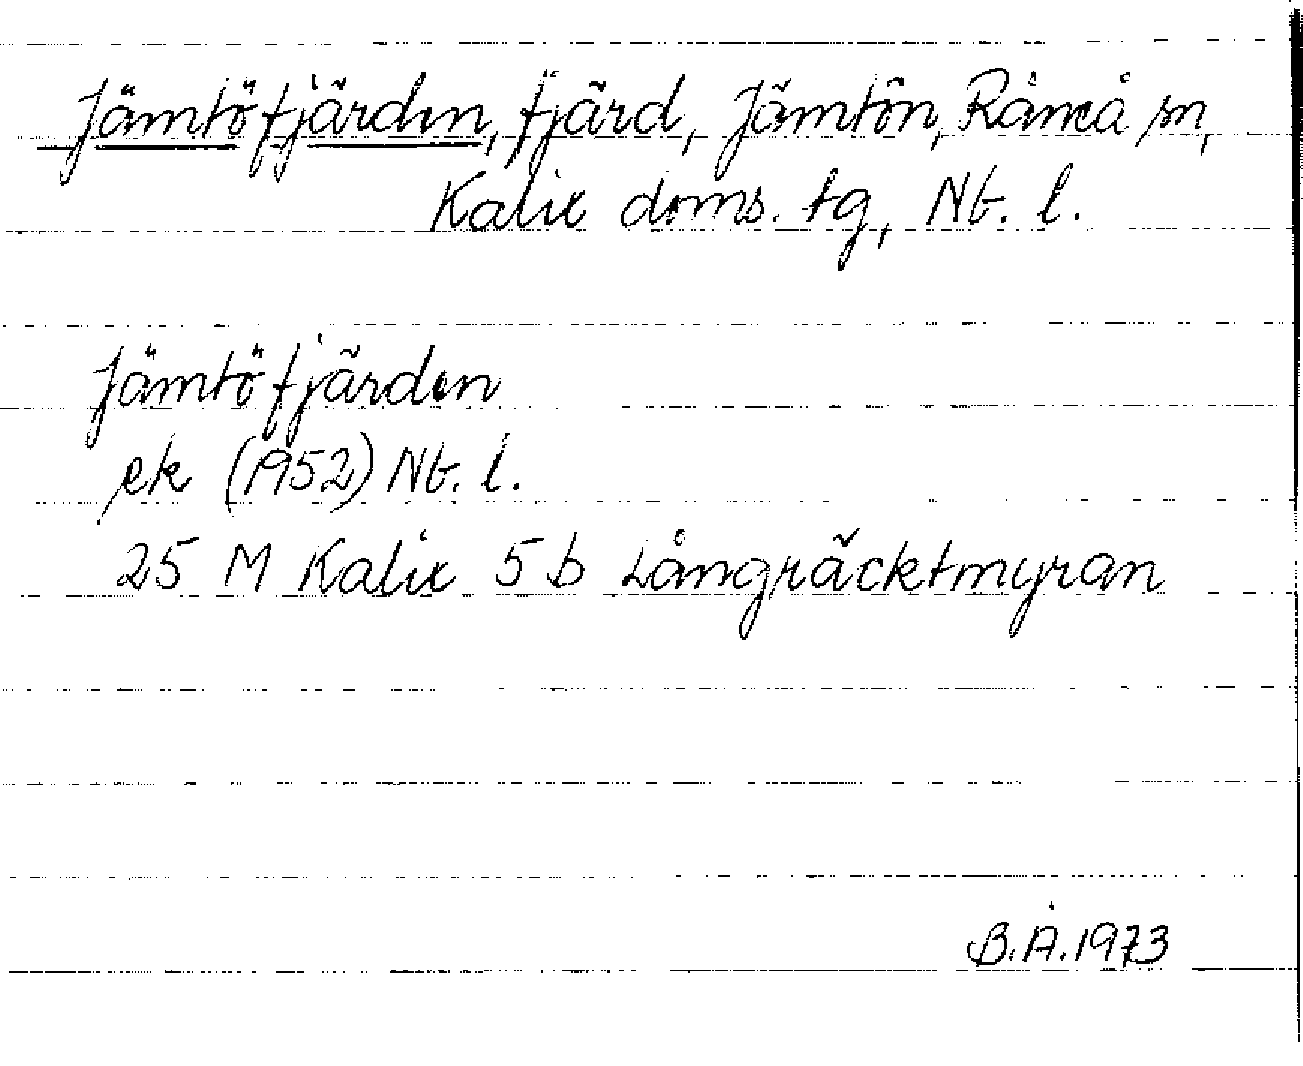 Jämtöfjärden, fjärd, Jämtön, Råneå sn,
Kalix doms. tg, Nb. l.
Jämtöfjärden
ek (1952) Nb. l.
25 M Kalix 5 b Långräcktmyran
B.Å.1973